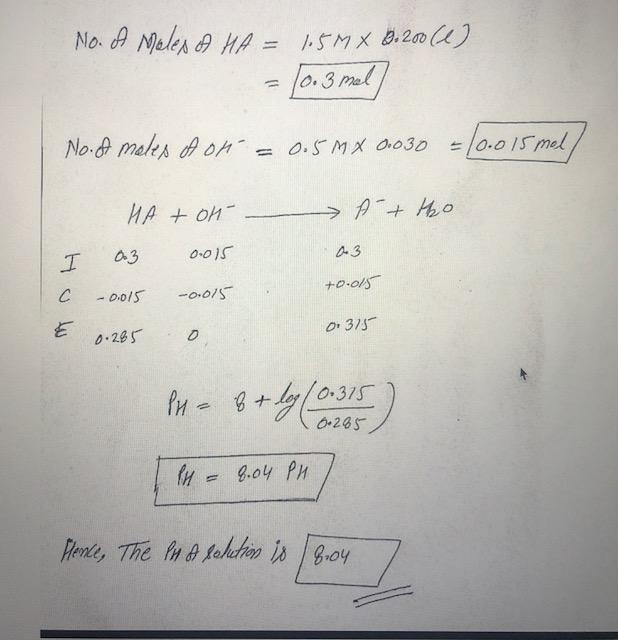 No. of Moles of HA = 1.5M X 0.200(l)
= 0.3 mol
No. of moles of OH⁻ = 0.5 M X 0.030 = 0.015 mol
HA + OH⁻ → A⁻ + H₂O
I 0.3 0.015 0.3
C -0.015 -0.015 +0.015
E 0.285 0 0.315
PH = 8 + log(0.315/0.285)
PH = 8.04 PH
Hence, The PH of solution is 8.04